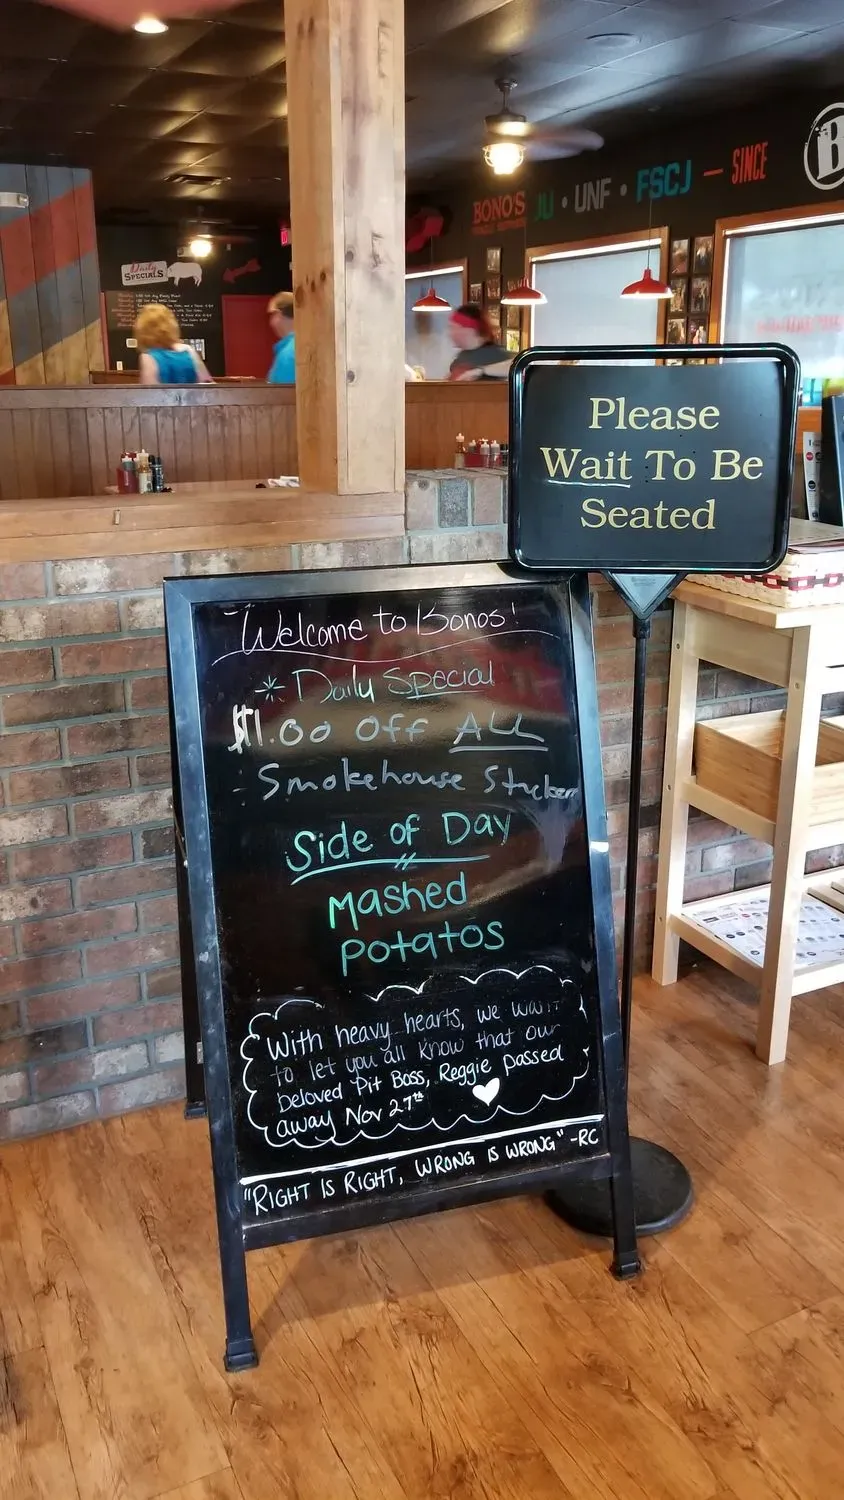 BONO'S JU · UNF · FSCJ — SINCE
B
Daily
SPECIALS
Please
Wait To Be
Seated
Welcome to Bonos!
* Daily Special
$1.00 Off ALL
- Smokehouse Stacker
Side of Day
Mashed
Potatos
With heavy hearts, we want
to let you all know that our
beloved Pit Boss, Reggie passed
away Nov 27th
"RIGHT IS RIGHT, WRONG IS WRONG" -RC